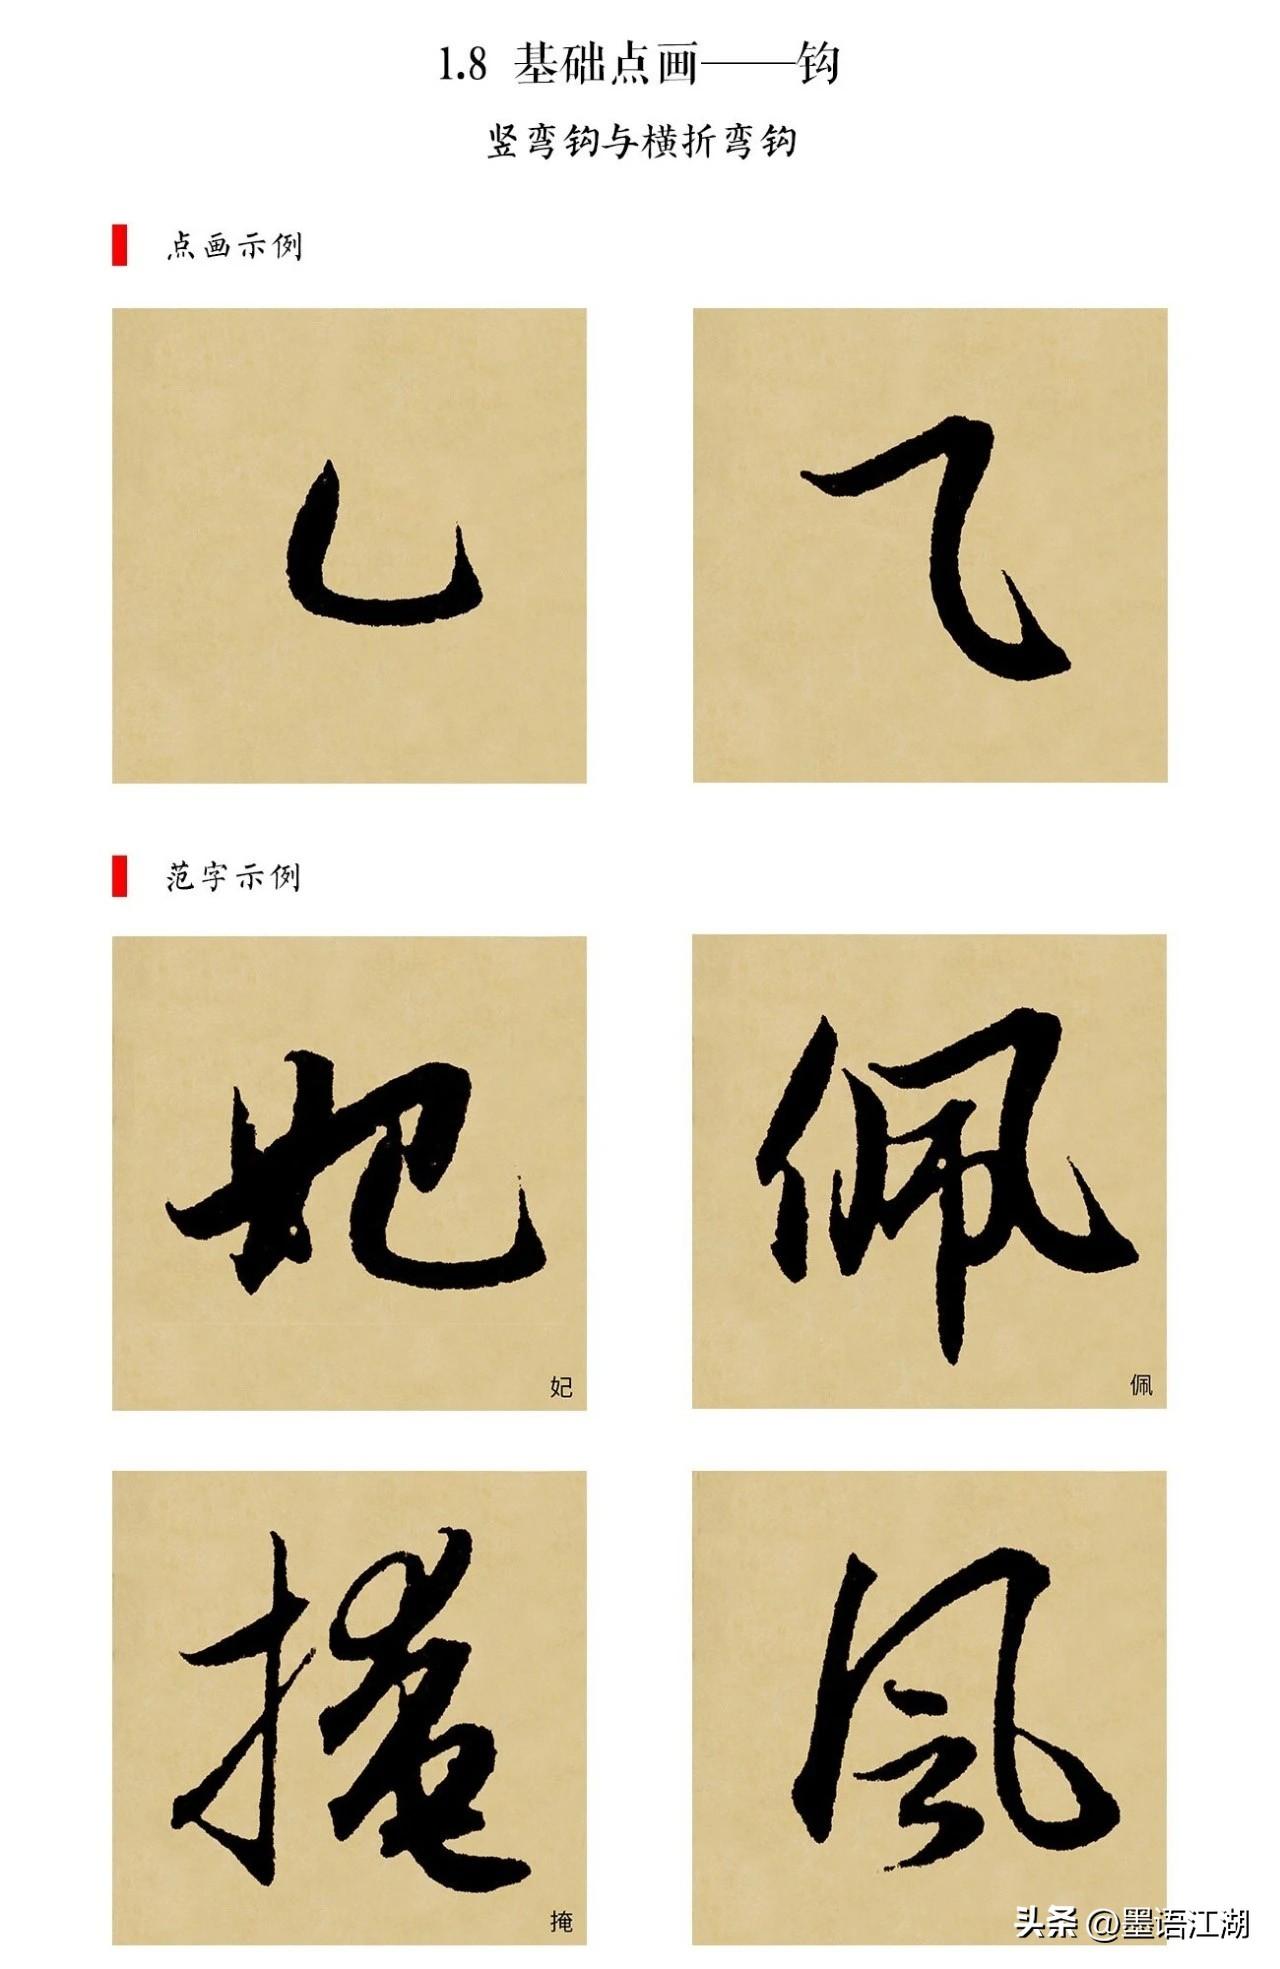 1.8 基础点画——钩
竖弯钩与横折弯钩
点画示例
乚 ⺄
范字示例
妃 佩
妃 佩
掩 风
掩
头条 @墨语江湖